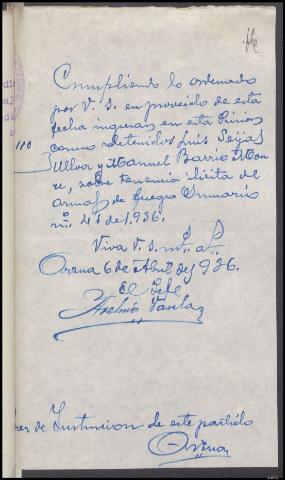 Cumpliendo lo ordenado
por V. S. en proveido de esta
fecha ingresan en esta Prision
como detenidos Luis Seijas
Ulloa y Manuel Barrio
sobre tenencia ilicita de
armas de fuego Sumario
nº. 41 de 1.936.
Viva V. S. m. a.
Arzua 6 de Abril de 1936.
El Jefe
110
de Instrucion de este partido
Arzua